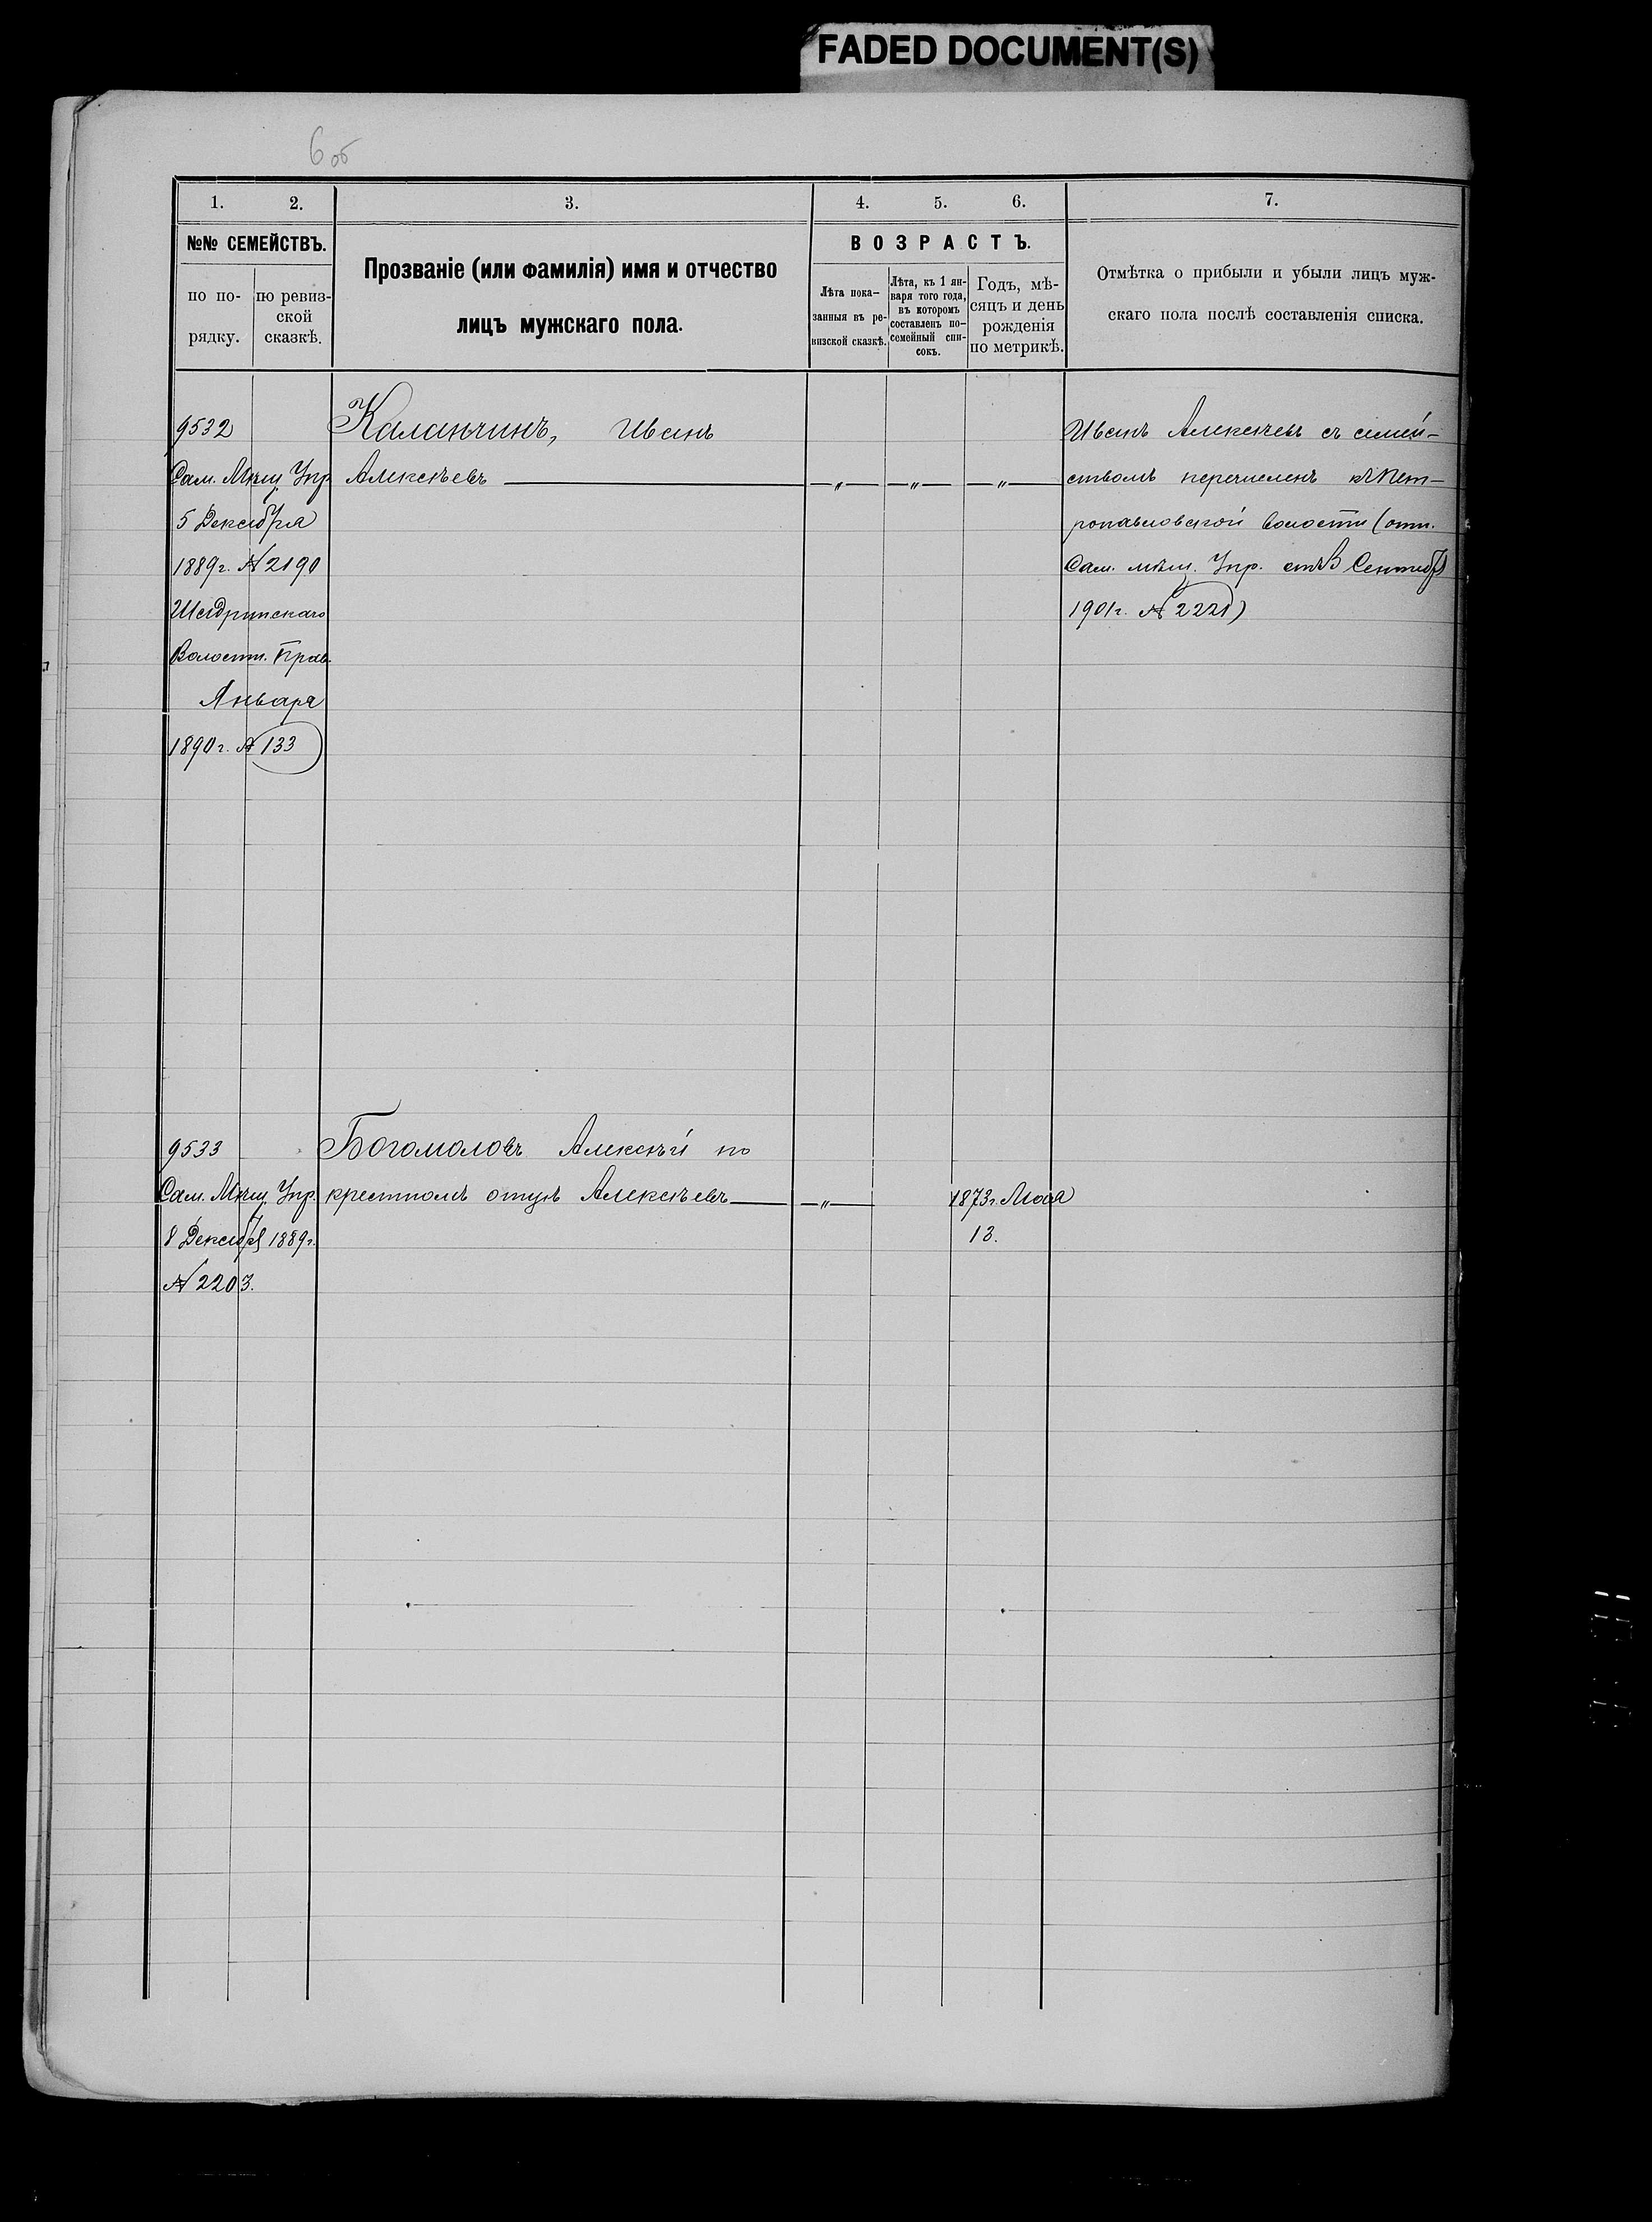 FADED DOCUMENT(S)
6об
1. 2. 3. 4. 5. 6. 7.
№№ СЕМЕЙСТВЪ.
по по-
рядку.
по ревиз-
ской
сказкѣ.
Прозваніе (или фамилія) имя и отчество
лицъ мужскаго пола.
ВОЗРАСТЪ.
Лѣта пока-
занныя въ ре-
визской сказкѣ.
Лѣта, къ 1 ян-
варя того года,
въ которомъ
составленъ по-
семейный спи-
сокъ.
Годъ, мѣ-
сяцъ и день
рожденія
по метрикѣ.
Отмѣтка о прибыли и убыли лицъ муж-
скаго пола послѣ составленія списка.
9532
Сам. Мѣщ. Упр
5 Декабря
1889г. № 2190
Волостн. Прав.
Января
1890г. № 133
Каланчинъ, Иванъ
Алексѣевъ — „ — „ — „ —
Иванъ Алексѣевъ съ семей-
ствомъ перечисленъ къ Пет-
ропавловской волости (отн.
Сам. мѣщ. Упр. Сентябр
1901г. № 2221)
9533
Сам. Мѣщ. Упр.
8 Декабря 1889г.
№ 2203.
Богомоловъ Алексѣй по
крестномъ отцѣ Алексѣевъ — „ —
1873г. Мая
13.